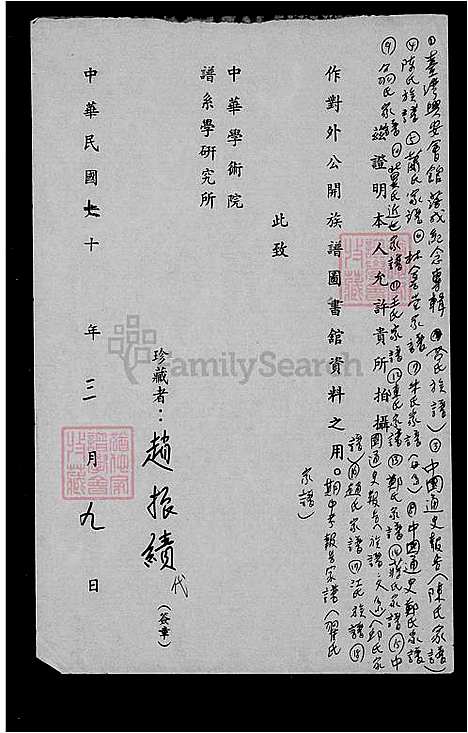 ①臺灣興安會館落成紀念專輯②黃氏族譜③中國通史報告(陳氏家譜)
④陳氏族譜⑤蕭氏家譜⑥林 家譜⑦ 氏家譜 中國通史鄭氏家譜
⑨翁氏家譜⑩莫氏近世家譜⑪王氏家譜 氏家譜 鄭氏家譜 蔣氏家譜 中
國通史報告(族譜 )邱氏家
譜 趙氏家譜 江氏族譜
茲證明本人允許貴所拍攝
作對外公開族譜圖書館資料之用。期中考報告家譜(翟氏
家譜)
此致
中華學術院
譜系學研究所
珍藏者:趙振績代(簽章)
中華民國七十年三月九日
FamilySearch